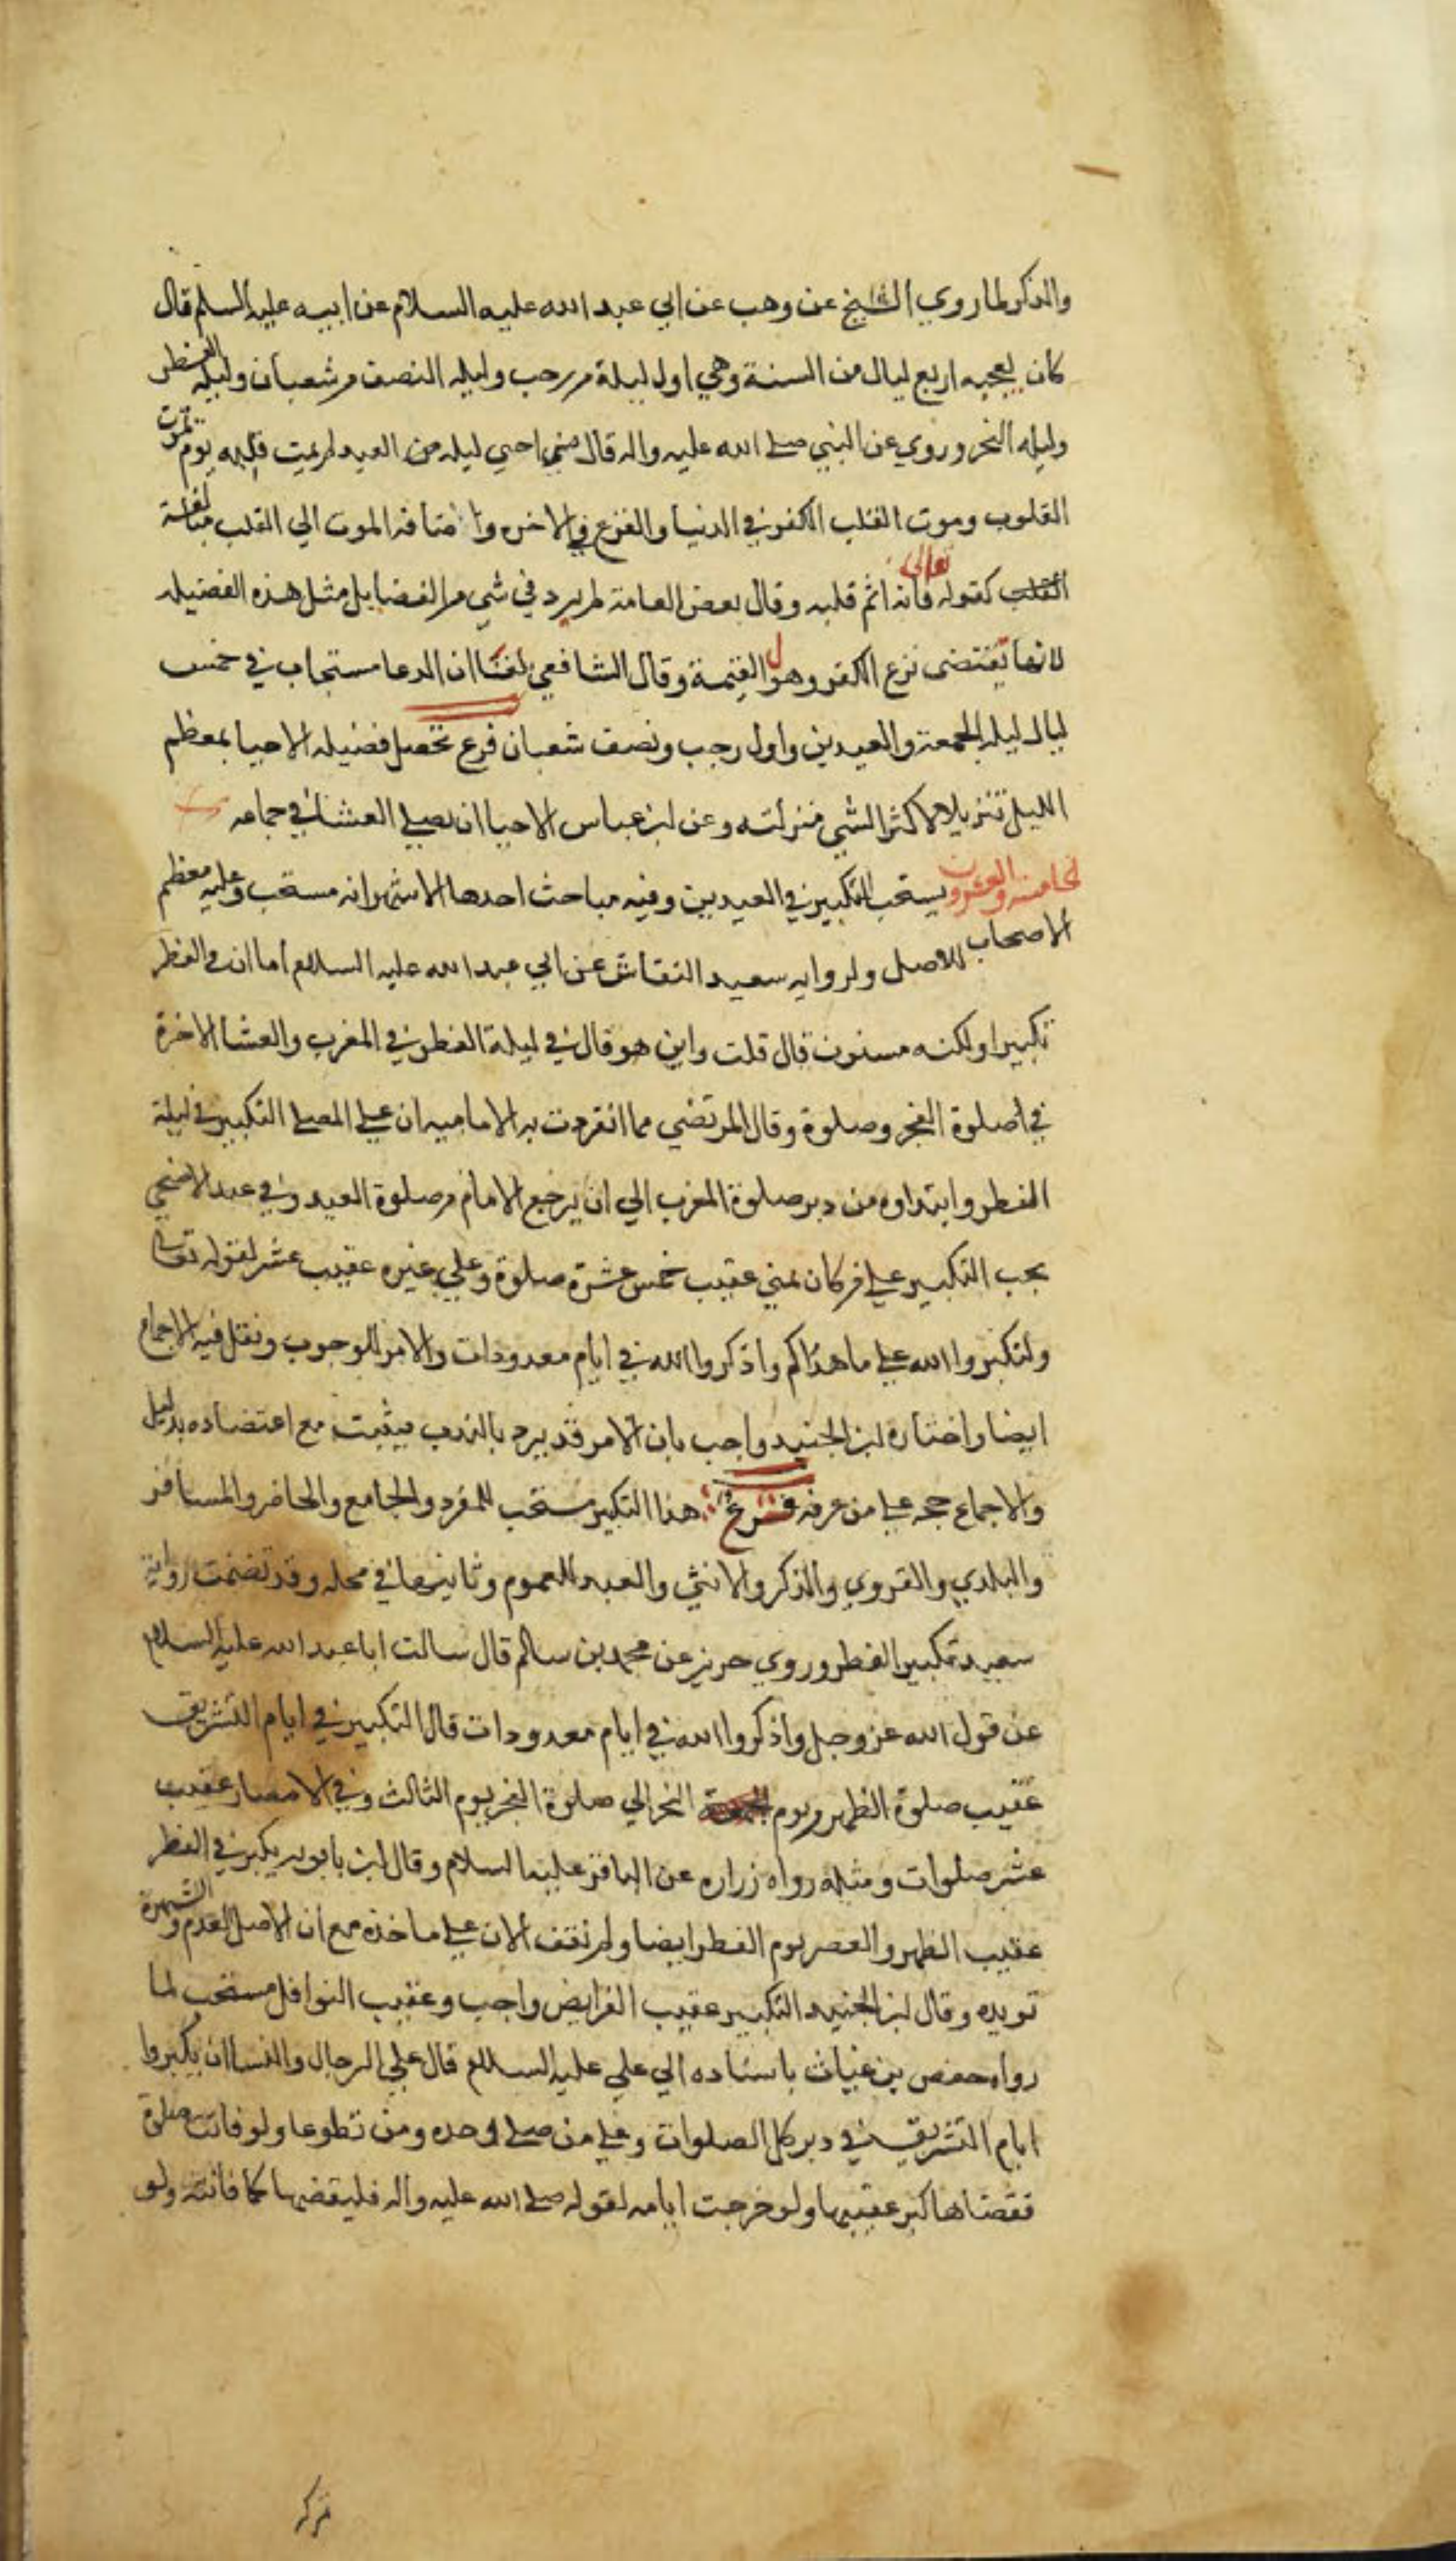 والذكر لما روي الشيخ عن وهب عن ابي عبد الله عليه السلام عن ابيه عليه السلم قال
كان يعجبه اربع ليال من السنة وهي اول ليلة من رجب وليله النصف من شعبان وليله الفطر
وليله النحر وروي عن النبي صلى الله عليه واله قال من احيى ليله من العيد لم يمت قلبه يوم تموت
القلوب وموت القلب الكفر في الدنيا والفزع في الاخره واضافه الموت الي القلب مبالغة
القلب كقوله تعالى فانه اثم قلبه وقال بعض العامة لم يرد في شي من الفضايل مثل هذه الفضيله
لانها تقتضى نزع الكفر وهول القيمة وقال الشافعي بلغنا ان الدعا مستجاب في خمس
ليال ليله الجمعة والعيدين واول رجب ونصف شعبان فرع تحصل فضيله الاحيا بمعظم
الليل تنزيلا لاكثر الشي منزلته وعن ابن عباس الاحيا ان يصلي العشا في جماعه
الخامسة والعشرون يستحب التكبير في العيدين وفيه مباحث احدها الاشهر انه مستحب وعليه معظم
الاصحاب للاصل ولروايه سعيد النقاش عن ابي عبد الله عليه السلام اما ان في الفطر
تكبيرا ولكنه مسنون قال قلت واين هو قال في ليلة الفطر في المغرب والعشا الاخرة
في اصلوة الفجر وصلوة وقال المرتضي مما انفردت به الاماميه ان على المصلي التكبير في ليلة
الفطر وابتداوه من دبر صلوة المغرب الي ان يرجع الامام من صلوة العيد وفي عيد الاضحي
يجب التكبير علي من كان بمني عقيب خمس عشرة صلوة وعلي غيره عقيب عشر لقوله تعالى
ولتكبروا الله على ما هداكم واذكروا الله في ايام معدودات والامر للوجوب ونقل فيه الاجماع
ايضا واختاره ابن الجنيد واجب بان الامر قد يرد بالندب فيثبت مع اعتضاده بدليل
والاجماع حجه علي من عرفه فرع هذا التكبير مستحب للمفرد والجامع والحاضر والمسافر
والبلدي والقروي والذكر والانثي والعبد للعموم وثانيها في محله وقد تضمنت رواية
سعيد تكبير الفطر وروي حريز عن محمد بن سالم قال سالت ابا عبد الله عليه السلام
عن قول الله عز وجل واذكروا الله في ايام معدودات قال التكبير في ايام التشريق
عقيب صلوة الظهر يوم النحر الي صلوة الفجر يوم الثالث وفي الامصار عقيب
عشر صلوات ومثله رواه زراره عن الباقر عليه السلام وقال ابن بابويه يكبر في الفطر
عقيب الظهر والعصر يوم الفطر ايضا ولم نقف الان علي ماخذه مع ان الاصل العدم والشهرة
تويده وقال ابن الجنيد التكبير عقيب الفرايض واجب وعقيب النوافل مستحب لما
رواه حفص بن غياث باسناده الي علي عليه السلام قال علي الرجال والنسا ان يكبروا
ايام التشريق في دبر كل الصلوات وعلي من صلى وحده ومن تطوعا ولو فاتته صلوة
فقضاها كبر عقيبها ولو خرجت ايامه لقوله صلى الله عليه واله فليقضها كما فاتته ولو